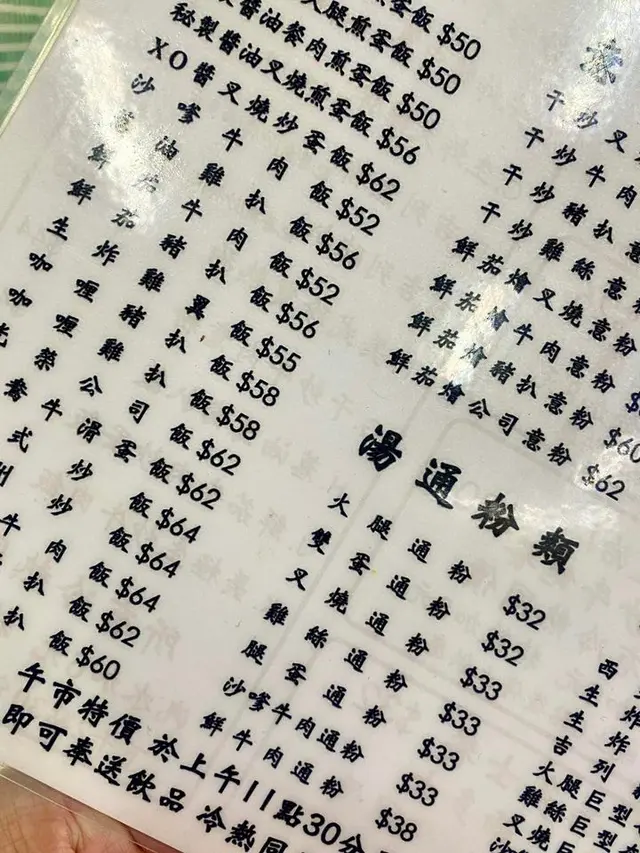 煎蛋飯 $50
腿煎蛋飯 $50
醬油餐肉煎蛋飯 $50
秘製醬油叉燒煎蛋飯 $56
XO醬叉燒炒蛋飯 $62
沙嗲牛肉飯 $52
油雞扒飯 $56
鮮茄牛肉飯 $52
鮮茄豬扒飯 $56
生炸雞翼飯 $55
咖喱豬扒飯 $58
咖喱雞扒飯 $58
榮公司飯 $62
牛滑蛋飯 $62
式炒飯 $64
州炒飯 $64
牛肉飯 $64
扒飯 $62
扒飯 $60
午市特價 於上午11點30分
即可奉送飲品 冷熱同
干炒叉
干炒牛肉
干炒豬扒意
干炒雞絲意粉
鮮茄燴叉燒意粉
鮮茄燴牛肉意粉 $
鮮茄燴豬扒意粉 $60
鮮茄燴公司意粉 $62
湯通粉類
火腿通粉 $32
雙蛋通粉 $32
叉燒通粉 $33
雞絲通粉 $33
腿蛋通粉 $33
沙嗲牛肉通粉 $33
鮮牛肉通粉 $38
西
生炸
生炸
吉列
火腿巨型
雞絲巨型
叉燒巨